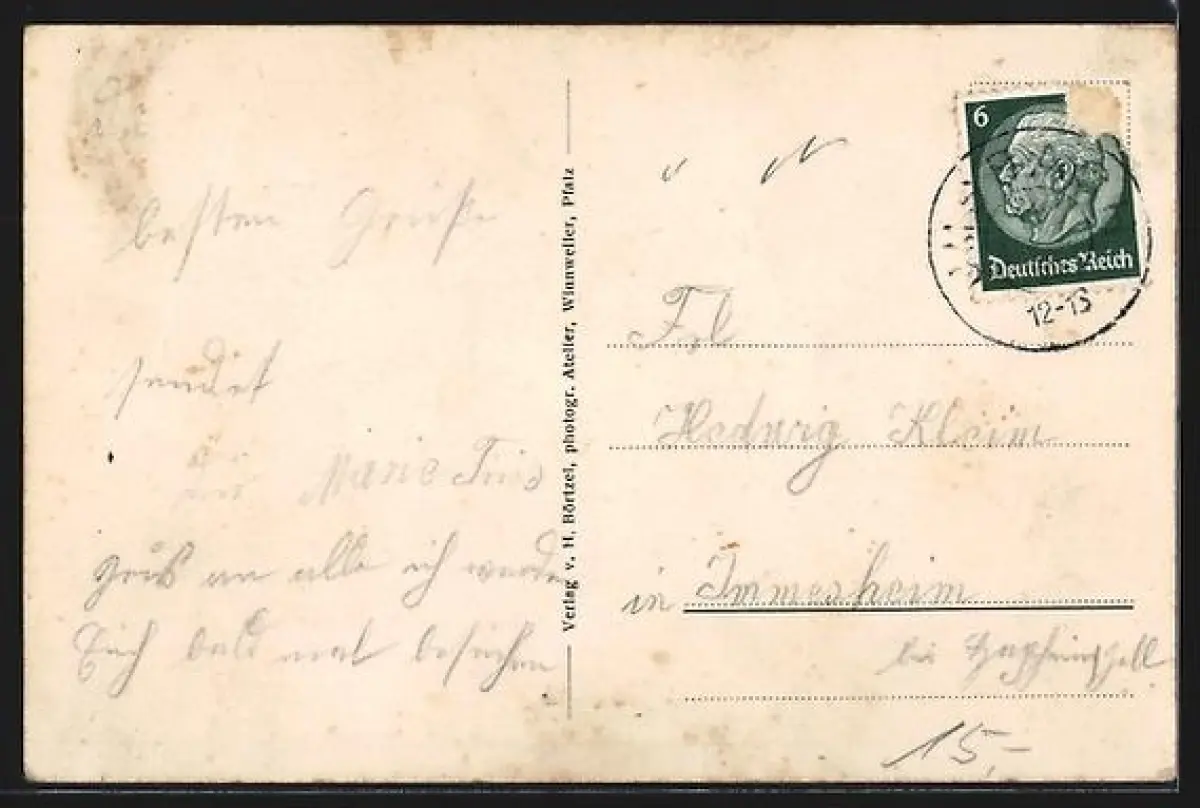 besten Grüße
sendet
Marie
grus an alle ich werde
Euch bald mal besuchen
Verlag v. H. Börtzel, photogr. Atelier, Winnweiler, Pfalz
6
Deutsches Reich
12-13
Frl
Hedwig Kleim
in Immesheim
bei
15,-